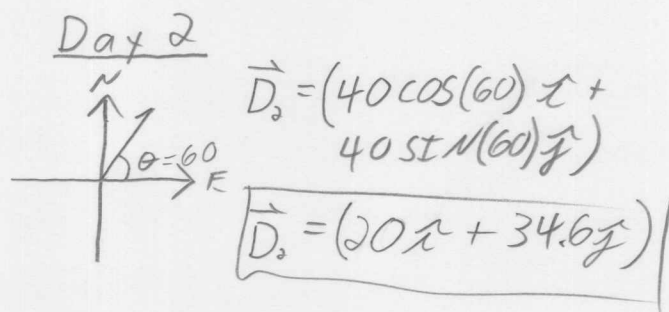 Day 2
N
θ=60
E
D⃗₂ = (40 cos(60) î +
40 sIN(60) ĵ)
D⃗₂ = (20 î + 34.6 ĵ)